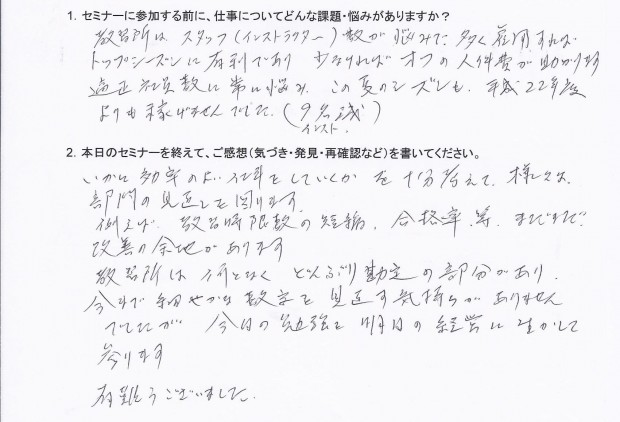 1. セミナーに参加する前に、仕事についてどんな課題・悩みがありますか？
教習所は スタッフ（インストラクター）数が悩みで 多く雇用すれば
トップシーズンに有利であり 少なければ オフの人件費が助かります
適正社員数に常に悩み、この夏のシーズンも、平成22年度
よりも稼げませんでした。（9名減）
インスト.
2. 本日のセミナーを終えて、ご感想（気づき・発見・再確認など）を書いてください。
いかに効率のよい仕事をしていくか を十分考えて、様々な
部門の見直しを図ります
例えば、教習時限数の短縮、合格率、等、まだまだ
改善の余地があります
教習所は 何となく どんぶり勘定の部分があり、
今まで細やかな数字を見直す気持ちがありません
でしたが 今日の勉強を 明日の経営に生かして
参ります
有難うございました。